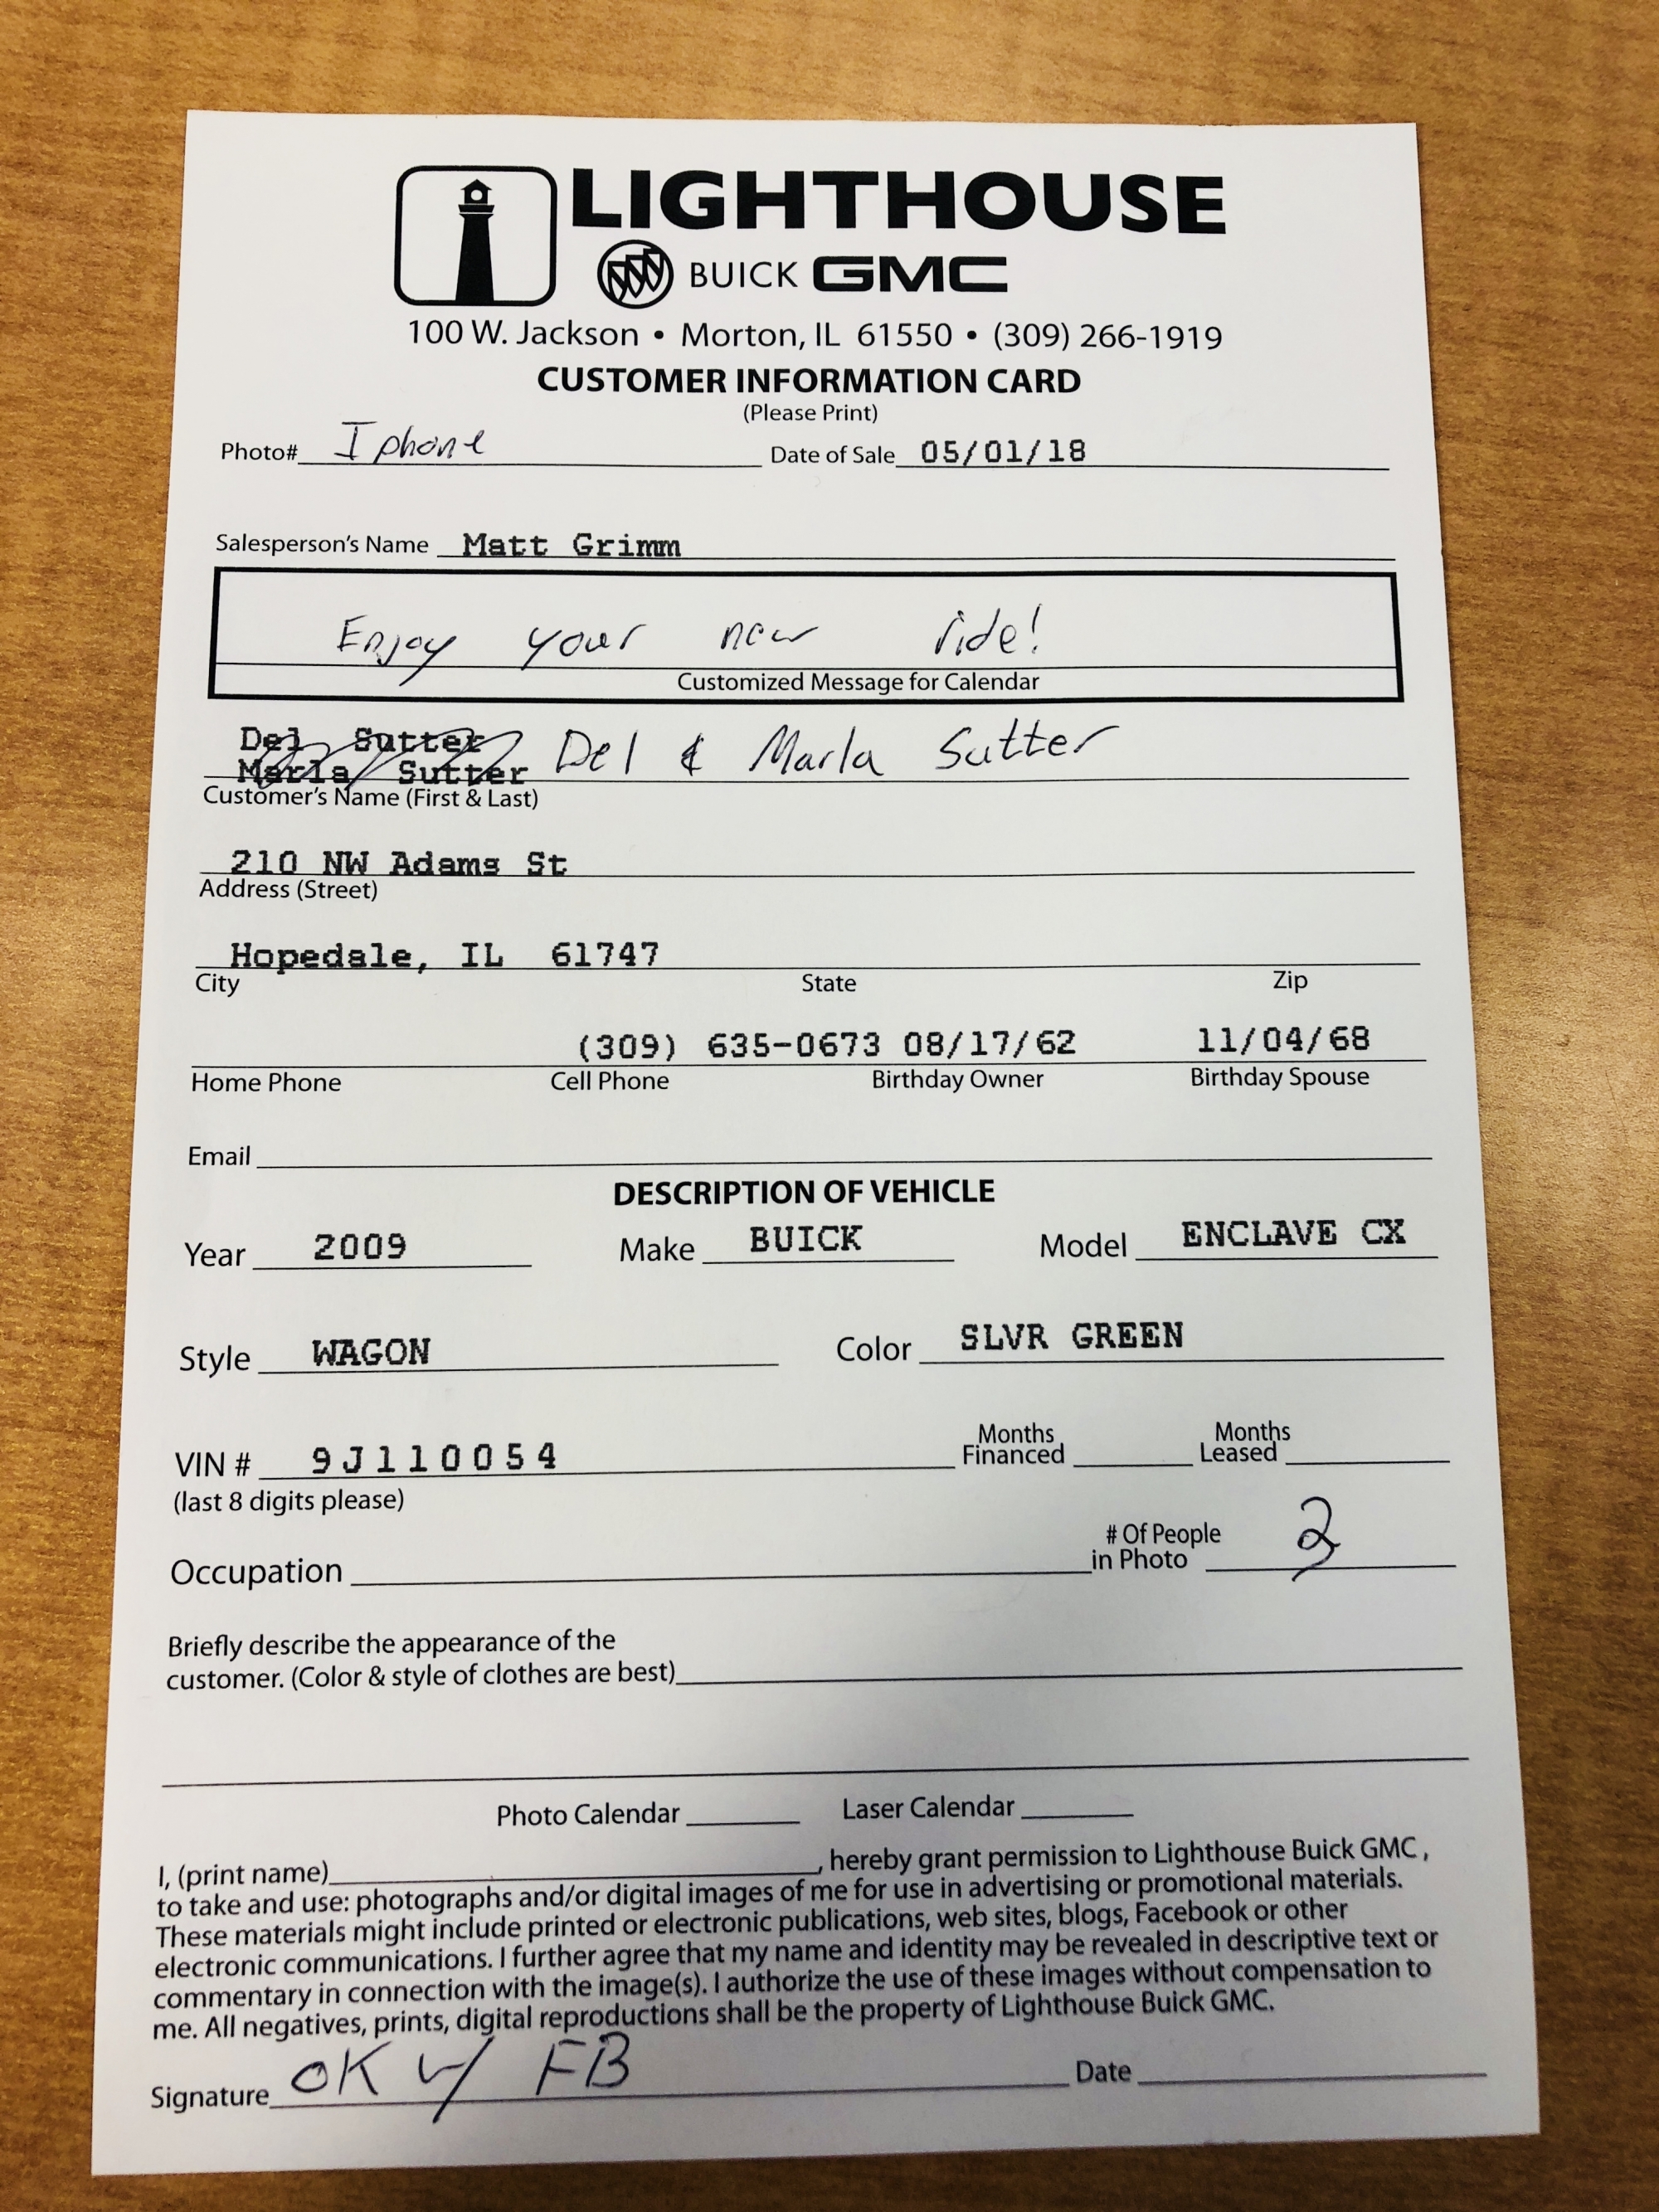 LIGHTHOUSE
BUICK GMC
100 W. Jackson • Morton, IL 61550 • (309) 266-1919
CUSTOMER INFORMATION CARD
(Please Print)
Photo# Iphone Date of Sale 05/01/18
Salesperson's Name Matt Grimm
Enjoy your new ride!
Customized Message for Calendar
Del Sutter
Marla Sutter Del & Marla Sutter
Customer's Name (First & Last)
210 NW Adams St
Address (Street)
Hopedale, IL 61747
City State Zip
(309) 635-0673 08/17/62 11/04/68
Home Phone Cell Phone Birthday Owner Birthday Spouse
Email
DESCRIPTION OF VEHICLE
Year 2009 Make BUICK Model ENCLAVE CX
Style WAGON Color SLVR GREEN
VIN # 9J110054 Months Financed Months Leased
(last 8 digits please)
Occupation # Of People in Photo 2
Briefly describe the appearance of the
customer. (Color & style of clothes are best)
Photo Calendar Laser Calendar
I, (print name) , hereby grant permission to Lighthouse Buick GMC,
to take and use: photographs and/or digital images of me for use in advertising or promotional materials.
These materials might include printed or electronic publications, web sites, blogs, Facebook or other
electronic communications. I further agree that my name and identity may be revealed in descriptive text or
commentary in connection with the image(s). I authorize the use of these images without compensation to
me. All negatives, prints, digital reproductions shall be the property of Lighthouse Buick GMC.
Signature OK w/ FB Date